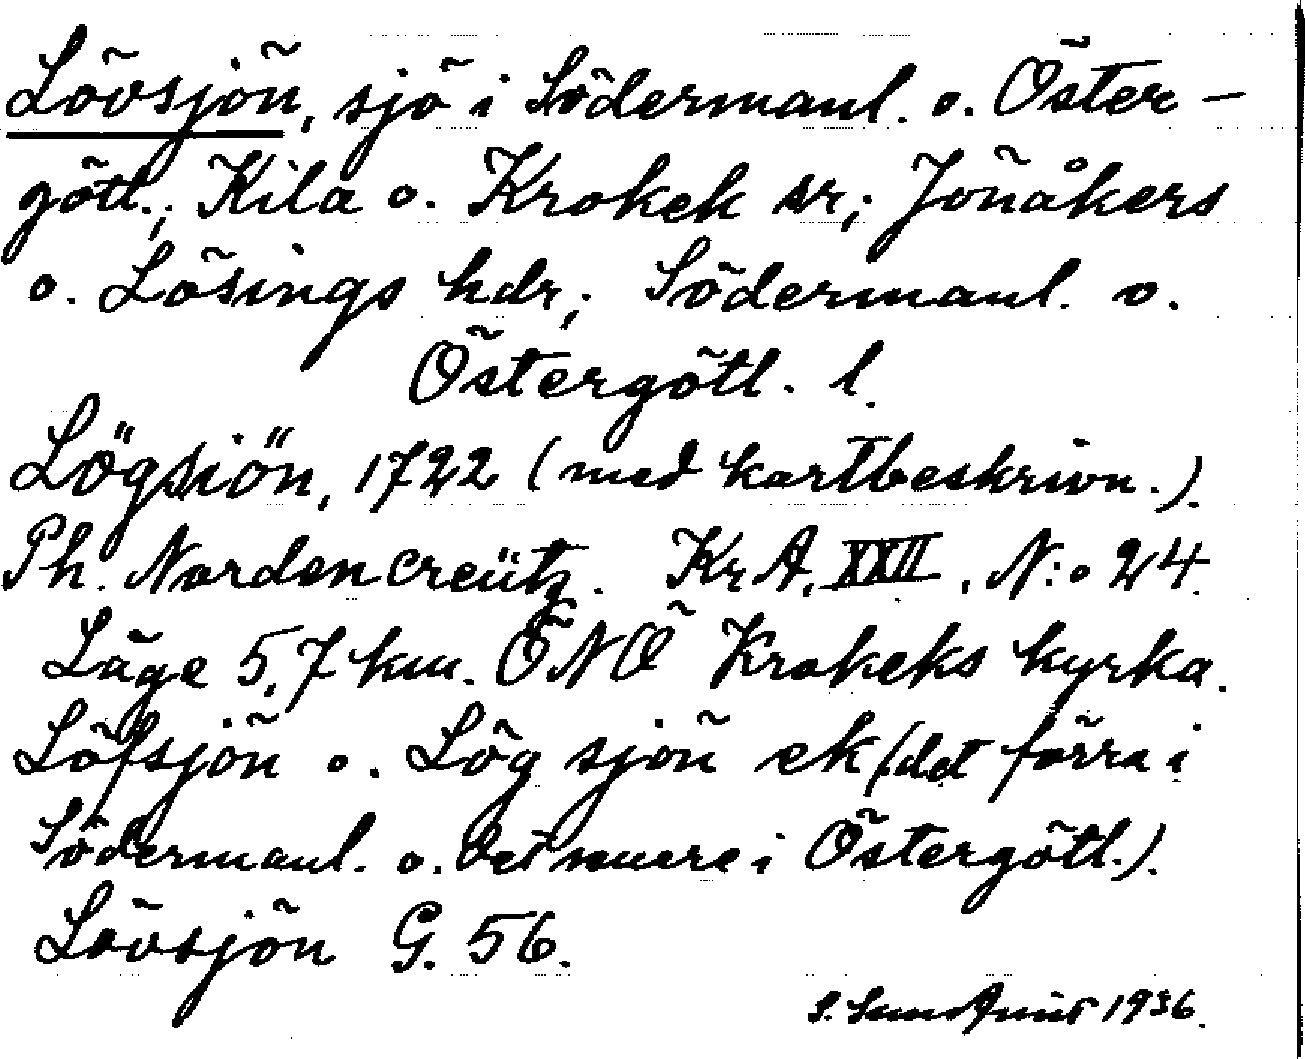 Lövsjön, sjö i Södermanl. o. Öster-
götl., Kila o. Krokek sr; Jönåkers
o. Lösings hdr; Södermanl. o.
Östergötl. l.
Lögsiön, 1722 (med kartbeskrivn.).
Ph. Nordencreütz. Kr A, XXII, N:o 24.
Läge 5,7 km. ÖNÖ Krokeks kyrka.
Löfsjön o. Lög sjön ek (det förra i
Södermanl. o. det senare i Östergötl.).
Lövsjön G. 56.
1936.